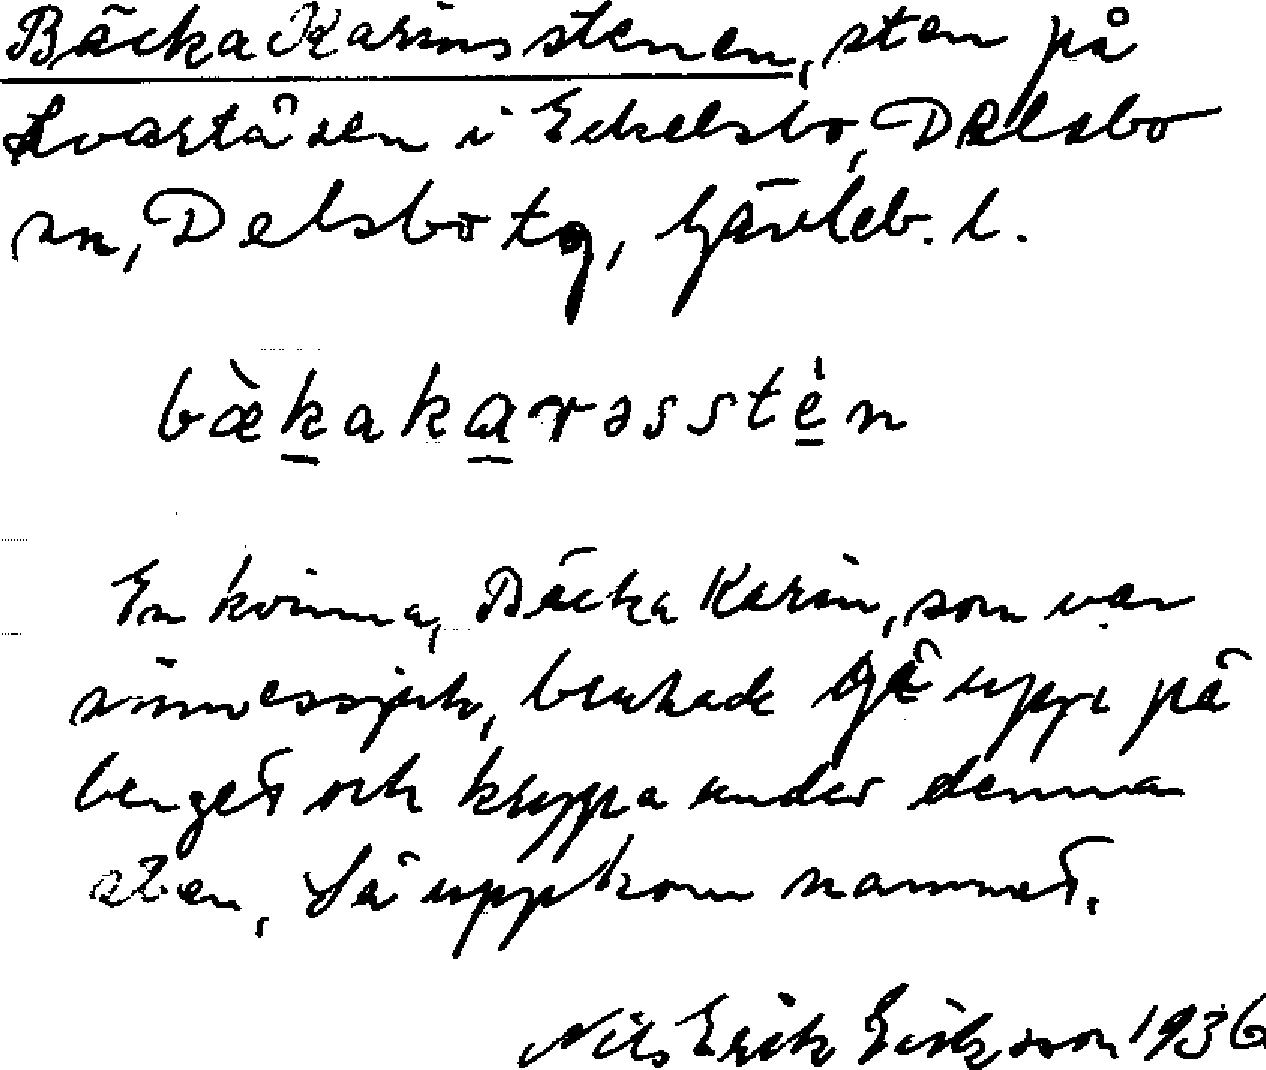 Bäcka Karinsstenen, sten på
Svartåsen i Eckelsbo, Delsbo
sn, Delsbo tg, Gävleb. l.
bæ̀kakarəsstèn
En kvinna, Bäcka Karin, som var
sinnessjuk, brukade gå upp på
berget och krypa under denna
sten. Så uppkom namnet.
Nils Erik Eriksson 1936